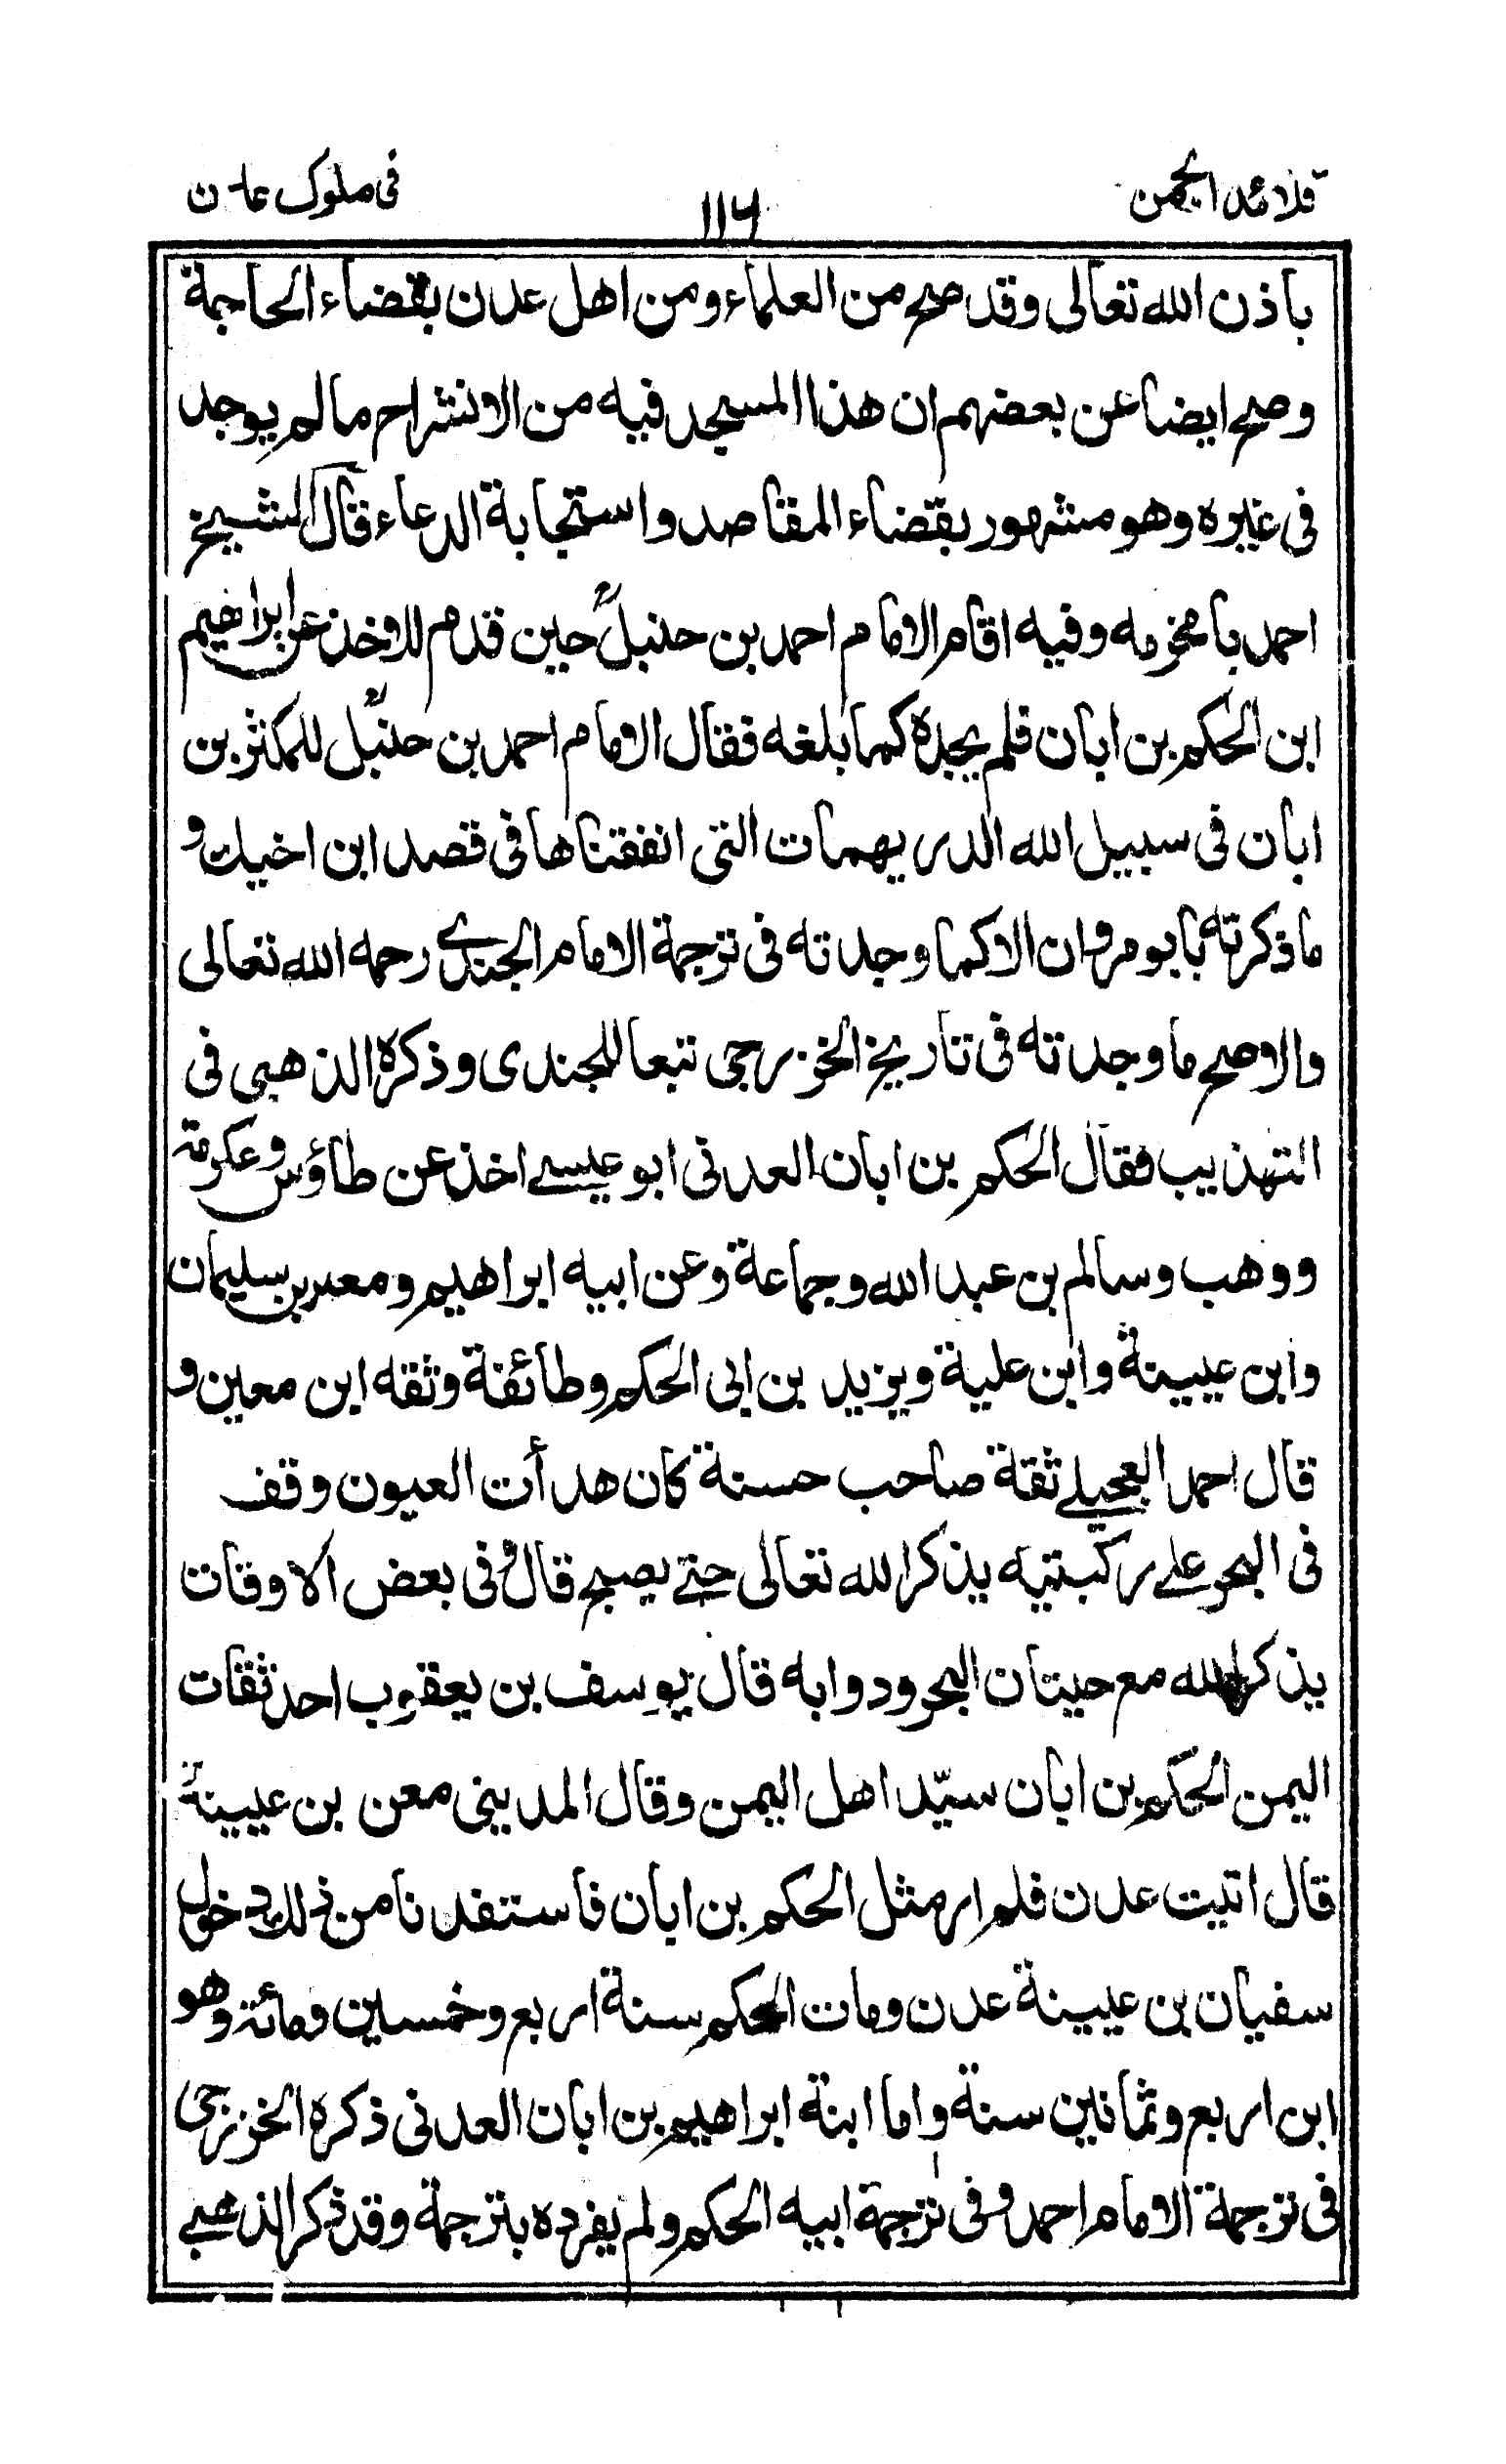 قلائد الجمن
١١٦
فى ملوك عدن
باذن الله تعالى وقد صح من العلماء ومن اهل عدن بقضاء الحاجة
وصح ايضا عن بعضهم ان هذا المسجد فيه من الانشراح مالم يوجد
فى غيره وهو مشهور بقضاء المقاصد واستجابة الدعاء قال الشيخ
احمد بامخرمه وفيه اقام الامام احمد بن حنبلؒ حين قدم للاخذ عن ابراهيم
ابن الحكم بن ابان فلم يجده كما بلغه فقال الامام احمد بن حنبلؒ للمكثر بن
ابان فى سبيل الله الدريهمات التى انفقناها فى قصد ابن اخيك و
ما ذكرته بابو مروان الا كما وجدته فى ترجمة الامام الجندي رحمه الله تعالى
والاصح ما وجدته فى تاريخ الخزرجى تبعا للجندى وذكره الذهبى فى
التهذيب فقال الحكم بن ابان العدنى ابو عيسے اخذ عن طاؤس وعكرمة
ووهب وسالم بن عبد الله وجماعة وعن ابيه ابراهيم ومعمر بن سليمان
وابن عيينة وابن علية ويزيد بن ابى الحكم وطائفة وثقه ابن معين و
قال احمد العجيلے ثقة صاحب حسنة كان هدأت العيون وقف
فى البحر علے ركبتيه يذكر الله تعالى حتے يصبح قال وفى بعض الاوقات
يذكر الله مع حيتان البحر ودوابه قال يوسف بن يعقوب احد ثقات
اليمن الحكم بن ابان سيّد اهل اليمن وقال المدينى معن بن عيينة
قال اتيت عدن فلم ار مثل الحكم بن ابان فاستفدنا من ذلك دخول
سفيان بن عيينة عدن ومات الحكم سنة اربع وخمسين ومائة وهو
ابن اربع وثمانين سنة واما ابنة ابراهيم بن ابان العدنى ذكره الخزرجى
فى ترجمة الامام احمد وفى ترجمة ابيه الحكم ولم يفرده بترجمة وقد ذكر الذهبے